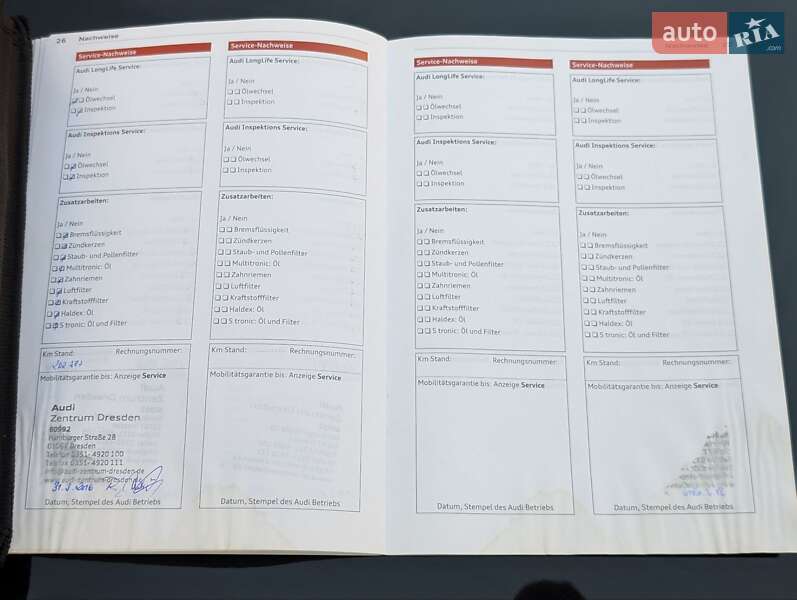 26 Nachweise
Service-Nachweise
Audi LongLife Service:
Ja / Nein
Ölwechsel
Inspektion
Audi Inspektions Service:
Ja / Nein
Ölwechsel
Inspektion
Zusatzarbeiten:
Ja / Nein
Bremsflüssigkeit
Zündkerzen
Staub- und Pollenfilter
Multitronic: Öl
Zahnriemen
Luftfilter
Kraftstofffilter
Haldex: Öl
S tronic: Öl und Filter
Km Stand: Rechnungsnummer:
Mobilitätsgarantie bis: Anzeige Service
Audi
Zentrum Dresden
Hamburger Straße 28
Dresden
Telefon 0351- 4920 100
Telefax 0351- 4920 111
info@audi-zentrum-dresden.de
www.audi-zentrum-dresden.de
Datum, Stempel des Audi Betriebs
Service-Nachweise
Audi LongLife Service:
Ja / Nein
Ölwechsel
Inspektion
Audi Inspektions Service:
Ja / Nein
Ölwechsel
Inspektion
Zusatzarbeiten:
Ja / Nein
Bremsflüssigkeit
Zündkerzen
Staub- und Pollenfilter
Multitronic: Öl
Zahnriemen
Luftfilter
Kraftstofffilter
Haldex: Öl
S tronic: Öl und Filter
Km Stand: Rechnungsnummer:
Mobilitätsgarantie bis: Anzeige Service
Datum, Stempel des Audi Betriebs
Service-Nachweise
Audi LongLife Service:
Ja / Nein
Ölwechsel
Inspektion
Audi Inspektions Service:
Ja / Nein
Ölwechsel
Inspektion
Zusatzarbeiten:
Ja / Nein
Bremsflüssigkeit
Zündkerzen
Staub- und Pollenfilter
Multitronic: Öl
Zahnriemen
Luftfilter
Kraftstofffilter
Haldex: Öl
S tronic: Öl und Filter
Km Stand: Rechnungsnummer:
Mobilitätsgarantie bis: Anzeige Service
Datum, Stempel des Audi Betriebs
Service-Nachweise
Audi LongLife Service:
Ja / Nein
Ölwechsel
Inspektion
Audi Inspektions Service:
Ja / Nein
Ölwechsel
Inspektion
Zusatzarbeiten:
Ja / Nein
Bremsflüssigkeit
Zündkerzen
Staub- und Pollenfilter
Multitronic: Öl
Zahnriemen
Luftfilter
Kraftstofffilter
Haldex: Öl
S tronic: Öl und Filter
Km Stand: Rechnungsnummer:
Mobilitätsgarantie bis: Anzeige Service
Datum, Stempel des Audi Betriebs
auto RIA .com